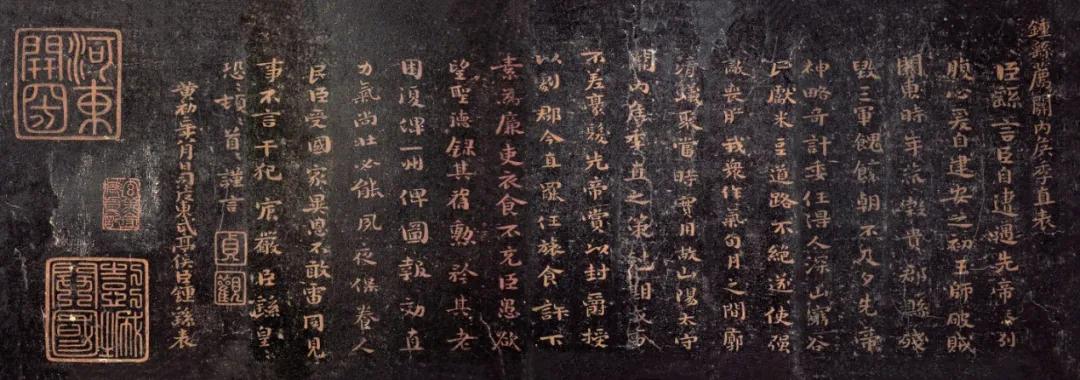 鍾繇薦關内侯季直表
臣繇言臣自遭遇先帝忝列
腹心爰自建安之初王師破賊
關東時年荒穀貴郡縣殘
毀三軍餽饟朝不及夕先帝
神略奇計委任得人深山窮谷
民獻米豆道路不絕遂使强
敵喪膽我衆作氣旬月之間廓
清蟻聚當時實用故山陽太守
關内侯季直之策尅期成事
不差豪髮先帝賞以封爵授
以劇郡今直罷任旅食許下
素爲廉吏衣食不充臣愚欲
望聖德錄其舊勳矜其老
困復俾一州俾圖報効直
力氣尚壯必能夙夜保養人
民臣受國家異恩不敢雷同見
事不言干犯宸嚴臣繇皇
恐頓首謹言
貞觀
黃初二年八月日司徒東武亭侯臣鍾繇表
河東